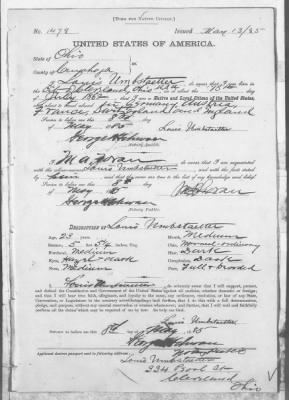 [FORM FOR NATIVE CITIZEN.]
No. 1478 Issued May 12/85
UNITED STATES OF AMERICA.
State of Ohio
County of Cuyahoga
I, Louis Umbstaetter do swear that I was born in
Cleveland, Ohio on the 15th day
of July 186 that I am a Native and Loyal Citizen of the United States,
Germany, Austria
France, Switzerland and England
Sworn to before me this 8th day
of May 1885 Louis Umbstaetter
Notary Public.
I, M. A. Foran do swear that I am acquainted
with the above-named Louis Umbstaetter and with the facts stated
by him and that the same are true to the best of my knowledge and belief.
Sworn to before me this 8th day
of May 188 M. A. Foran
Notary Public.
DESCRIPTION OF Louis Umbstaetter
Age, 23 years. Mouth, Medium
Stature, 5 feet inches, Eng. Chin,
Forehead, Medium Hair, Dark
Eyes, Hazel Complexion, Dark
Nose, Medium Face, Full
I, Louis Umbstaetter do solemnly swear that I will support, protect,
and defend the Constitution and Government of the United States against all enemies, whether domestic or foreign;
and that I will bear true faith, allegiance, and loyalty to the same, any ordinance, resolution, or law of any State,
Convention, or Legislature to the contrary notwithstanding; and further, that I do this with a full determination,
pledge, and purpose, without any mental reservation or evasion whatsoever; and further, that I will well and faithfully
perform all the duties which may be required of me by law: so help me God.
Louis Umbstaetter
Sworn to before me this 8th day of May 1885
Notary Public
Applicant desires passport sent to following address:
Louis Umbstaetter
Cleveland
Ohio